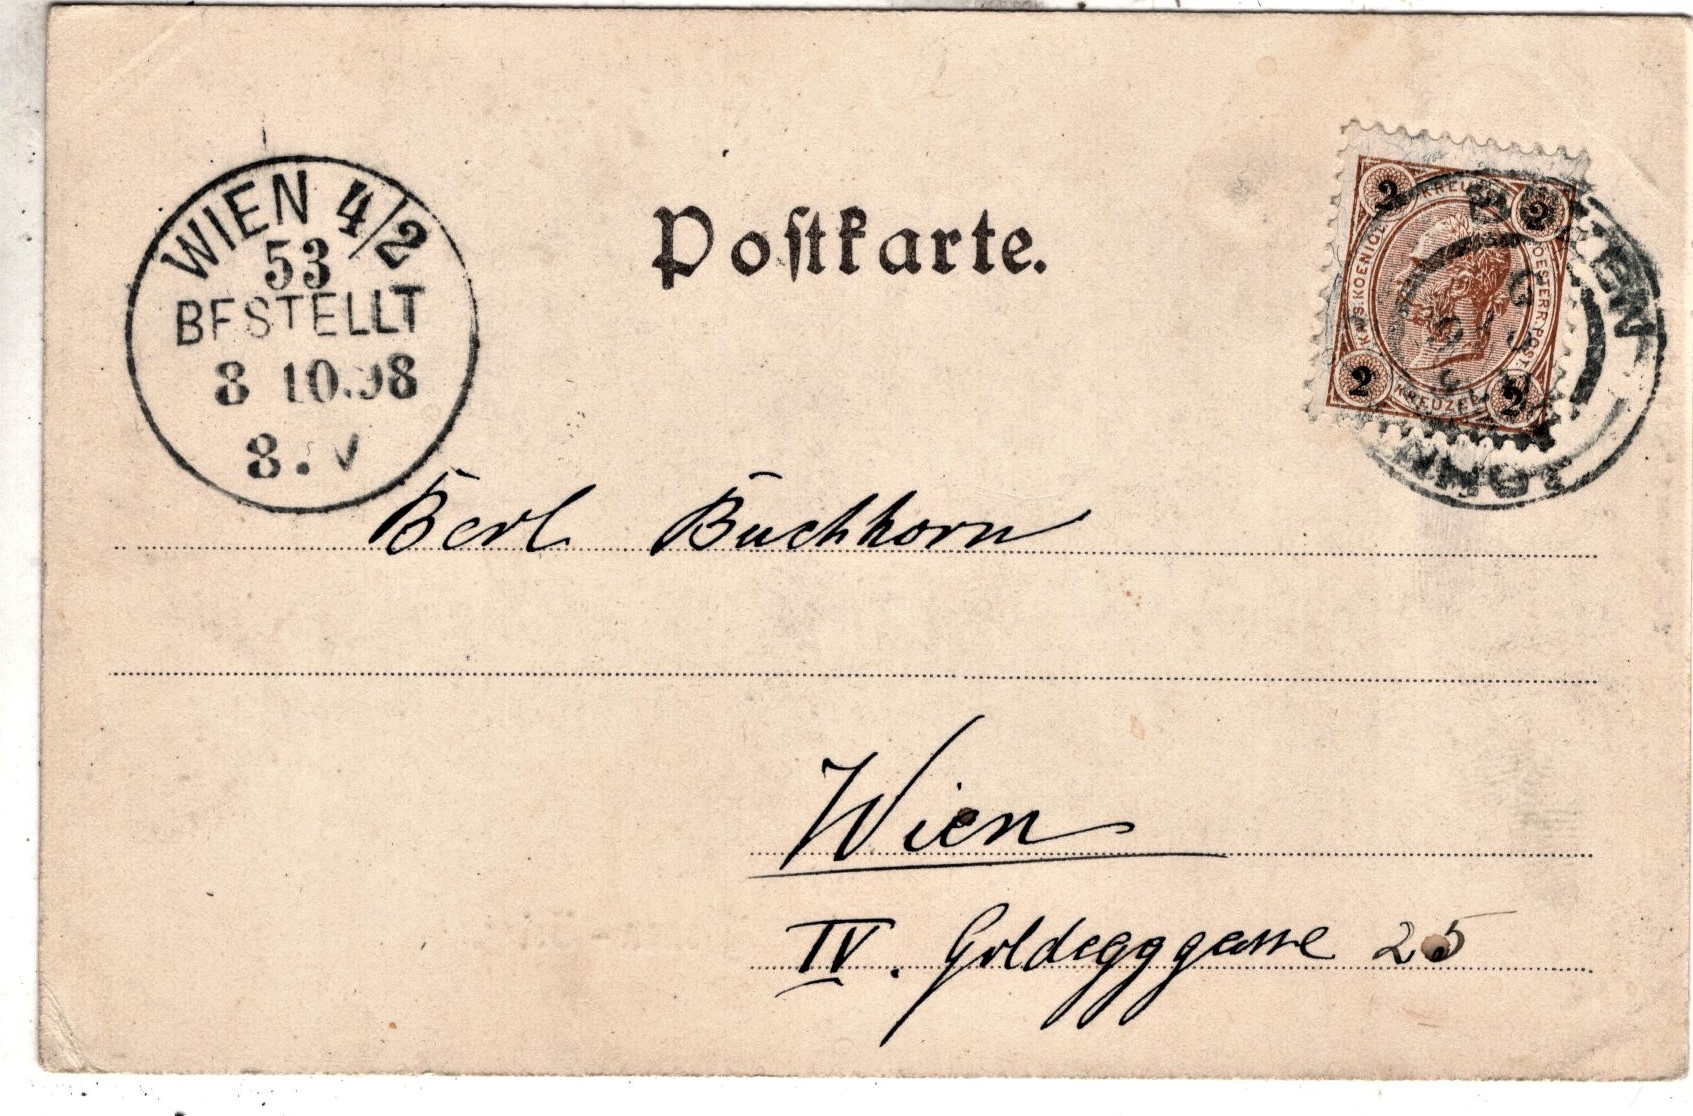 WIEN 4/2
53
BESTELLT
8 10.98
8. V
Postkarte.
2 KREUZER 2
KAIS. KOENIGL. OESTERR. POST.
2 KREUZER 2
Berl Buchhorn
Wien
IV. Goldegggasse 25